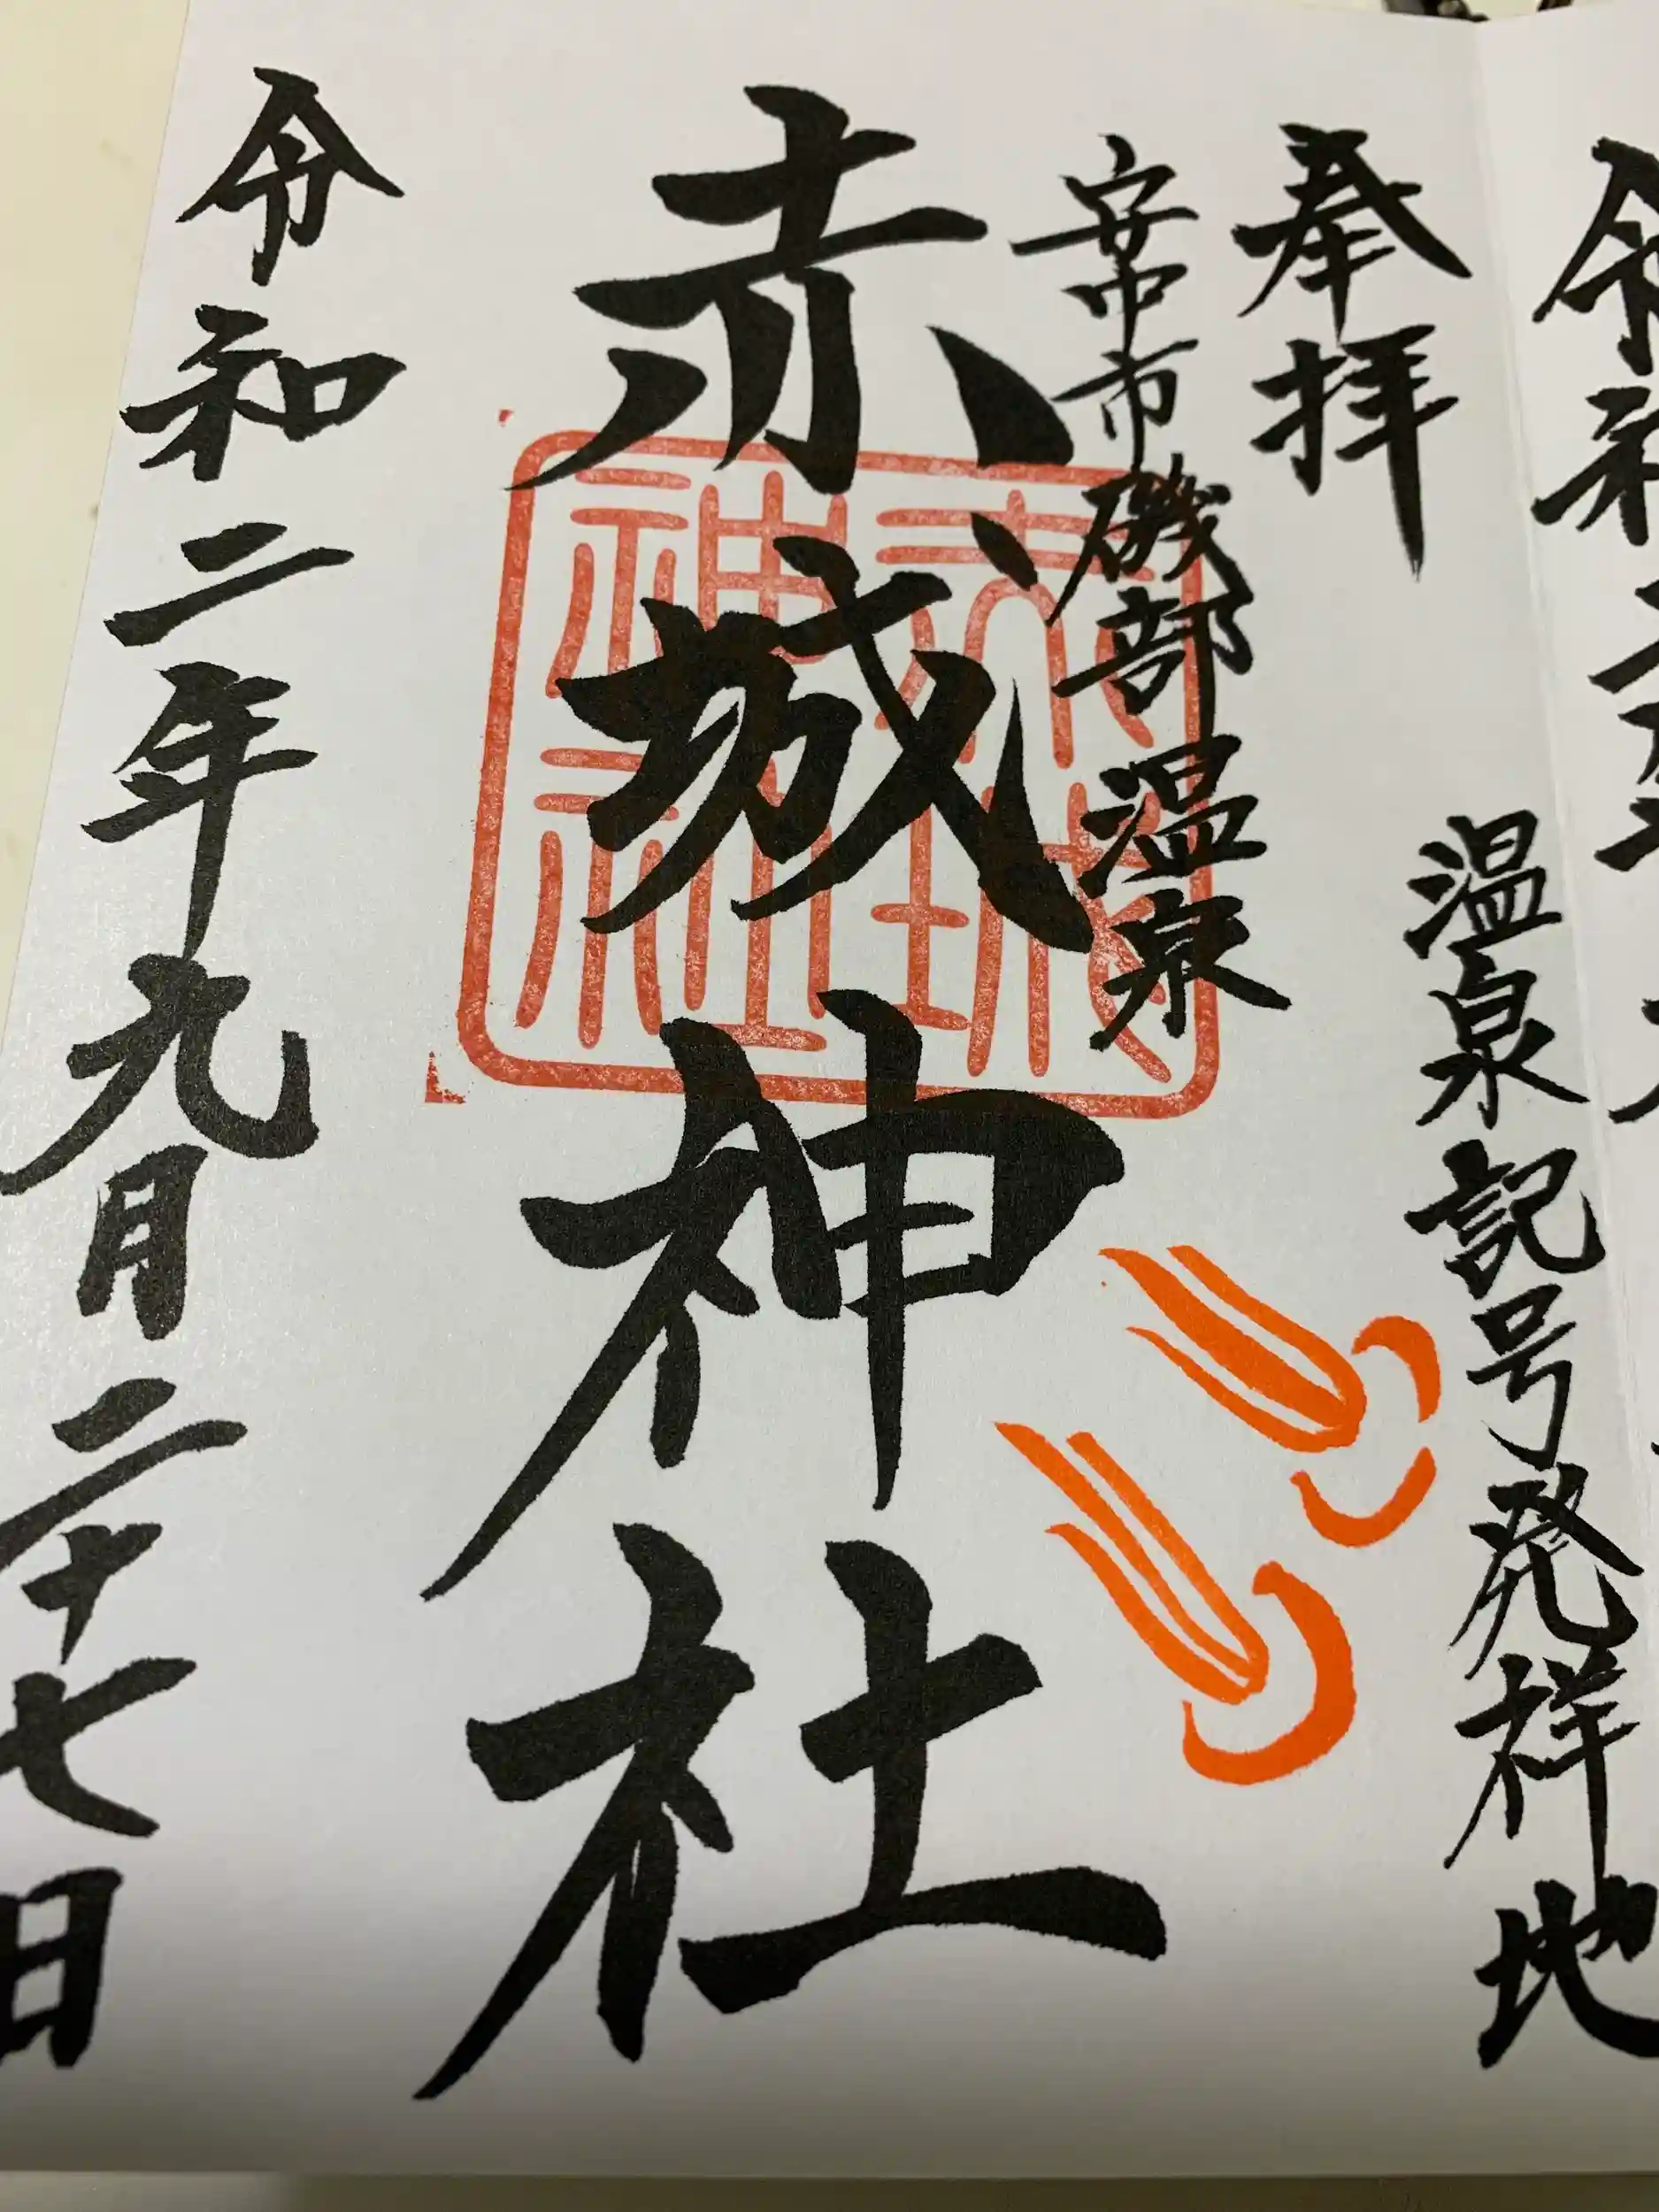 奉拝
温泉記号発祥地
安中市磯部温泉
赤城神社
赤城神社
令和二年九月二十七日